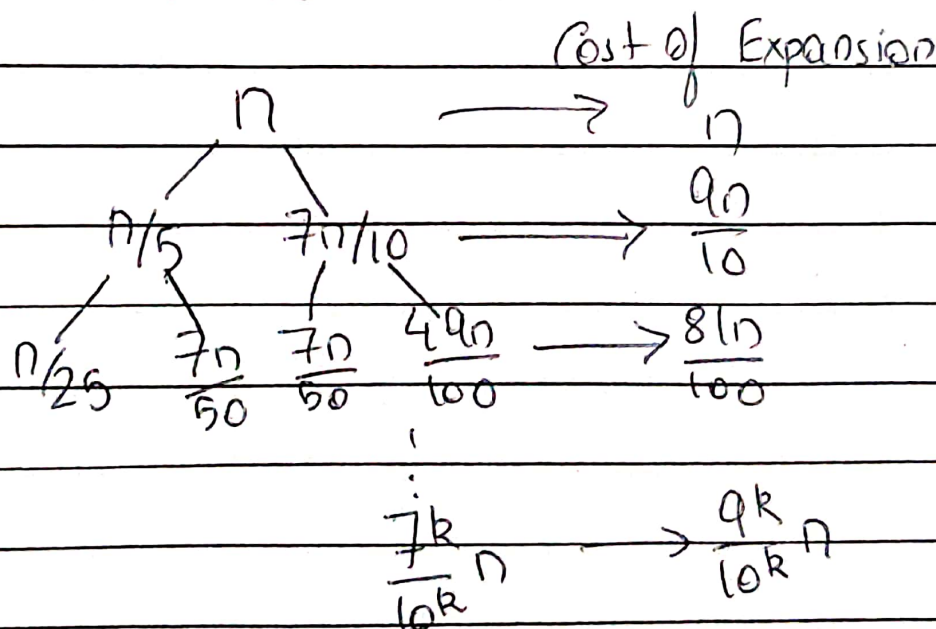 Cost of Expansion
n → n
n/5 7n/10 → 9n/10
n/25 7n/50 7n/50 49n/100 → 81n/100
⋮
7^k/10^k n → 9^k/10^k n